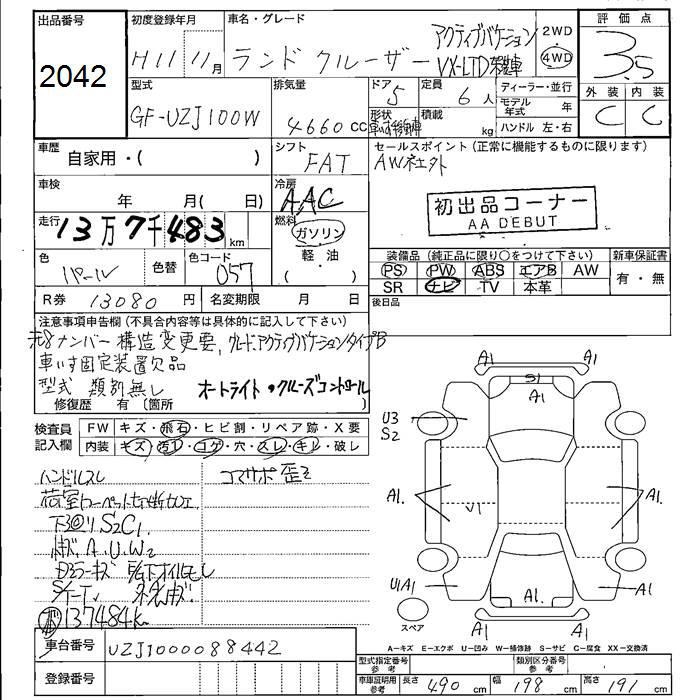 出品番号
2042
初度登録年月
H11 11月
車名・グレード
ランド クルーザー
アクティブバケーション
VX-LTD
2WD
4WD
評価点
3.5
外装 内装
C C
型式
GF-UZJ100W
排気量
4660 cc
ドア
5
形状
定員
6人
積載
kg
ディーラー・並行
モデル年式 年
ハンドル 左・右
車歴
自家用・( )
シフト
FAT
セールスポイント(正常に機能するものに限ります)
初出品コーナー
AA DEBUT
車検
年 月( 日)
冷房
AAC
走行
13万7千483km
燃料
ガソリン
軽・油
( )
色
パール
色替
色コード
057
装備品(純正品に限り○をつけて下さい)
新車保証書
PS PW ABS エアB AW
SR ナビ TV 本革
有・無
R券 13080円
名変期限 月 日
後日品
注意事項申告欄(不具合内容等は具体的に記入して下さい)
8ナンバー 構造変更要
車いす固定装置欠品
型式 類別無し オートライト・クルーズコントロール
修復歴 有(箇所 )
検査員記入欄
FW キズ・飛石・ヒビ割・リペア跡・X要
内装 キズ・汚レ・コゲ・穴・スレ・キレ・破レ
ハンドルスレ
コマサポ歪ミ
S2C1
A.U.W2
137484km
車台番号
UZJ1000088442
登録番号
A1 A1
S1
A1
U3
S2
A1. A1.
V1
U1A1
A1. A1
A1 A1
スペア
A−キズ E−エクボ U−凹み W−補修跡 S−サビ C−腐食 XX−交換済
型式指定番号 参考
類別区分番号 参考
車庫証明用 参考
長さ 490 cm 幅 198 cm 高さ 191 cm